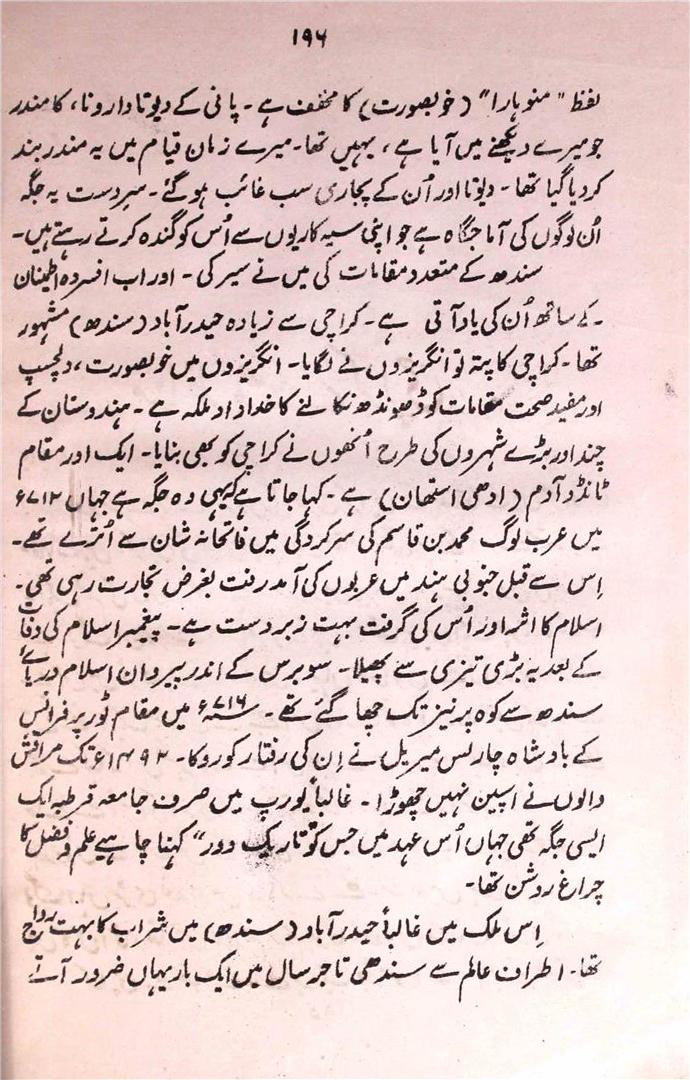 ۱۹۶
لفظ "منوہارا" (خوبصورت) کا مخفف ہے۔ پانی کے دیوتا دارونا، کا مندر
جو میرے دیکھنے میں آیا ہے، یہیں تھا۔ میرے زمان قیام میں یہ مندر بند
کر دیا گیا تھا۔ دیوتا اور اُن کے پجاری سب غائب ہو گئے۔ سردست یہ جگہ
اُن لوگوں کی آماجگاہ ہے جو اپنی سیہ کاریوں سے اُس کو گندہ کرتے رہتے ہیں۔
سندھ کے متعدد مقامات کی میں نے سیر کی۔ اور اب افسردہ اطمنان
کے ساتھ اُن کی یاد آتی ہے۔ کراچی سے زیادہ حیدرآباد (سندھ) مشہور
تھا۔ کراچی کا پتہ تو انگریزوں نے لگایا۔ انگریزوں میں خوبصورت، دلچسپ
اور مفید صحت مقامات کو ڈھونڈھ نکالنے کا خداداد ملکہ ہے۔ ہندوستان کے
چند اور بڑے شہروں کی طرح انھوں نے کراچی کو بھی بنایا۔ ایک اور مقام
ٹانڈو آدم (ادھی استھان) ہے۔ کہا جاتا ہے کہ یہی وہ جگہ ہے جہاں ۷۱۲ء
میں عرب لوگ محمد بن قاسم کی سرکردگی میں فاتحانہ شان سے اُترے تھے۔
اِس سے قبل جنوبی ہند میں عربوں کی آمد رفت بغرض تجارت رہی تھی۔
اسلام کا اثر اور اُس کی گرفت بہت زبردست ہے۔ پیغمبر اسلام کی وفات
کے بعد یہ بڑی تیزی سے پھیلا۔ سو برس کے اندر پیروان اسلام دریائے
سندھ سے کوہ پرنیز تک چھا گئے تھے۔ ۷۱۶ء میں مقام ٹور پر فرانس
کے بادشاہ چارلس میریل نے اِن کی رفتار کو روکا۔ ۱۴۹۲ء تک مراقش
والوں نے اسپین نہیں چھوڑا۔ غالباً یورپ میں صرف جامعہ قرطبہ ایک
ایسی جگہ تھی جہاں اُس عہد میں جس کو "تاریک دور" کہنا چاہیے علم و فضل کا
چراغ روشن تھا۔
اِس ملک میں غالباً حیدرآباد (سندھ) میں شراب کا بہت رواج
تھا۔ اطراف عالم سے سندھی تاجر سال میں ایک بار یہاں ضرور آتے